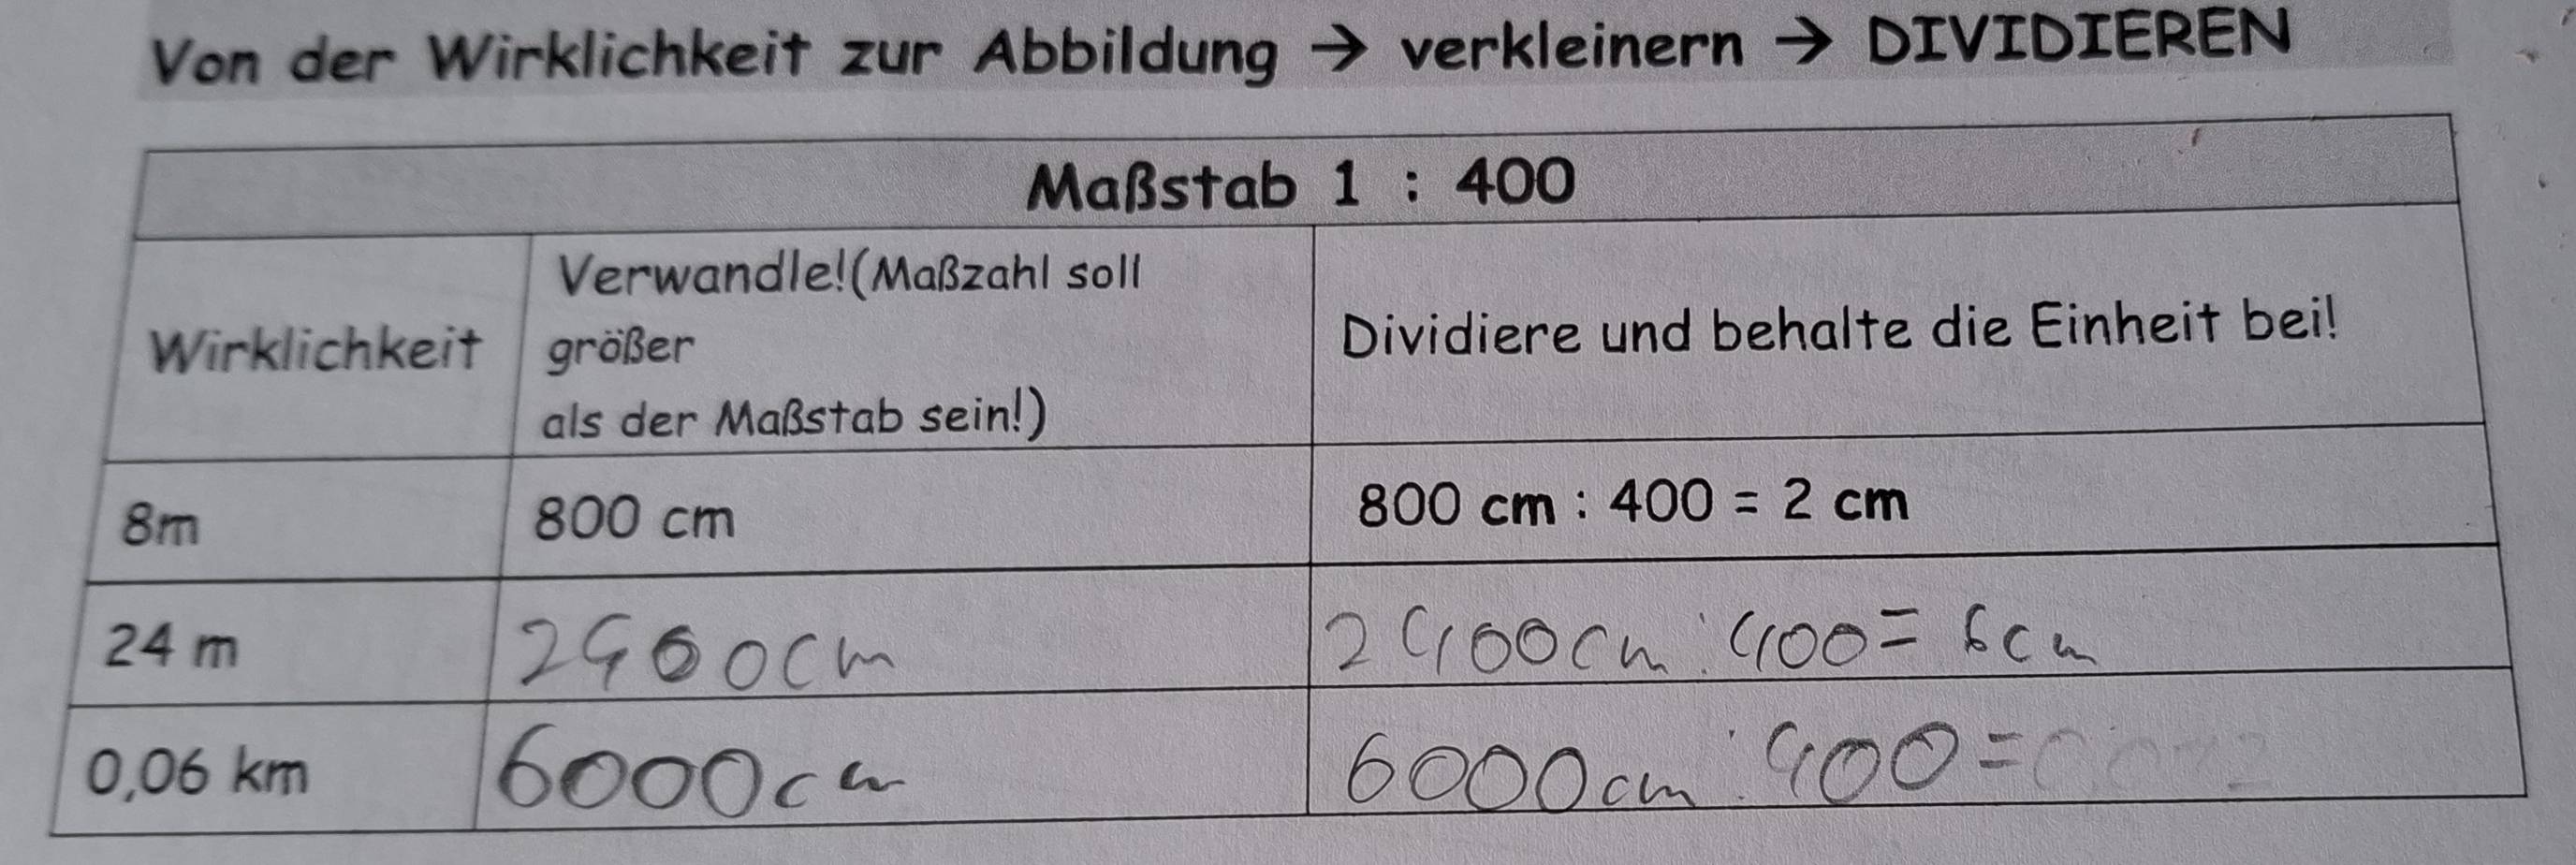 Von der Wirklichkeit zur Abbildung → verkleinern → DIVIDIEREN
Maßstab 1 : 400
Wirklichkeit
Verwandle!(Maßzahl soll
größer
als der Maßstab sein!)
Dividiere und behalte die Einheit bei!
8m
800 cm
800 cm : 400 = 2 cm
24 m
2400cm
2400cm : 400 = 6cm
0,06 km
6000cm
6000cm : 400 =